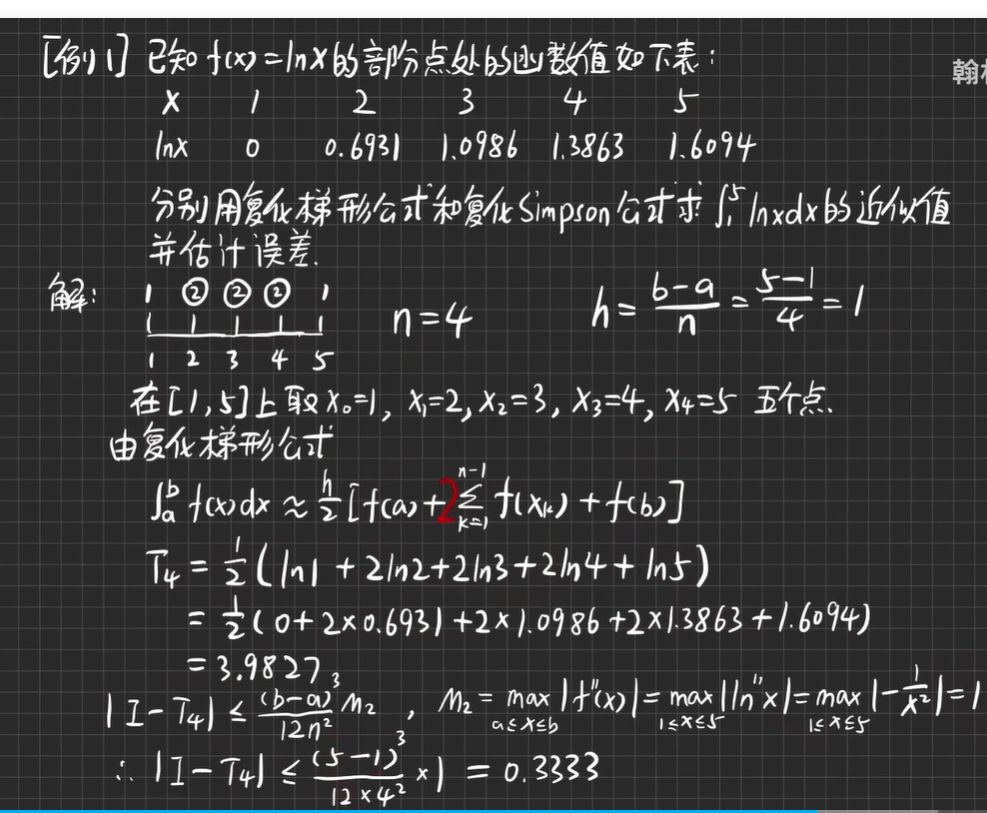 [例1] 已知 f(x)=lnx的部分点处的函数值如下表:
翰林
x 1 2 3 4 5
lnx 0 0.6931 1.0986 1.3863 1.6094
分别用复化梯形公式和复化Simpson公式求 ∫₁⁵ lnxdx的近似值
并估计误差.
解: 1 ② ② ② 1
n=4 h= (b-a)/n = (5-1)/4 = 1
1 2 3 4 5
在[1,5]上取x₀=1, x₁=2, x₂=3, x₃=4, x₄=5 五个点.
由复化梯形公式
∫ₐᵇ f(x)dx ≈ h/2 [f(a)+2∑ₖ₌₁ⁿ⁻¹ f(xₖ)+f(b)]
T₄ = 1/2 (ln1 + 2ln2+2ln3+2ln4+ln5)
= 1/2 (0+2×0.6931+2×1.0986+2×1.3863+1.6094)
= 3.9827
|I-T₄| ≤ (b-a)³/12n² M₂ , M₂ = max a≤x≤b |f''(x)| = max 1≤x≤5 |ln''x| = max 1≤x≤5 |-1/x²| = 1
∴ |I-T₄| ≤ (5-1)³/12×4² ×1 = 0.3333